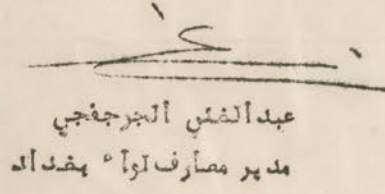 عبدالغني الجرجفجي
مدير معارف لواء بغداد